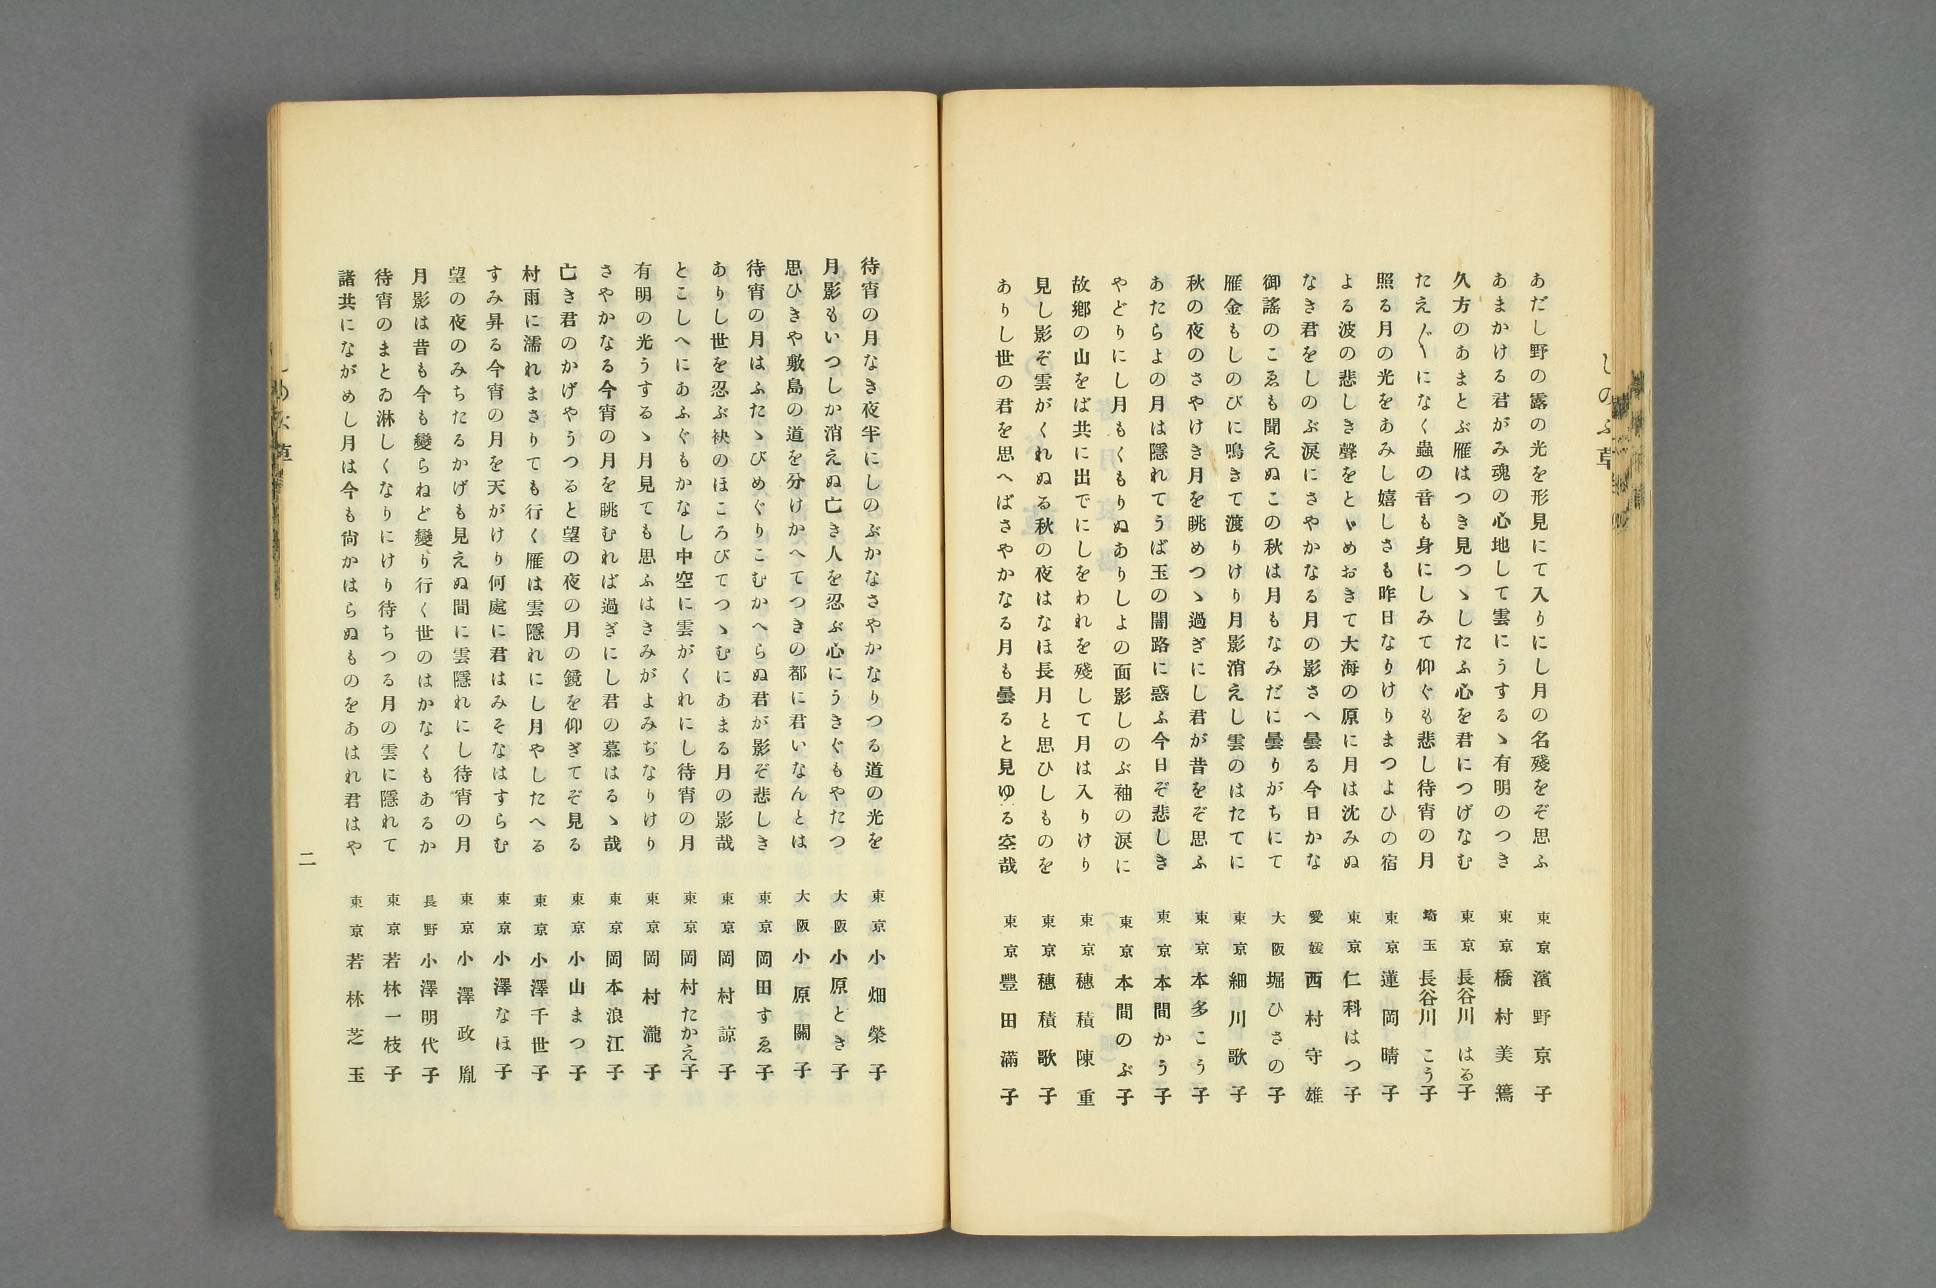 しのぶ草
あだし野の露の光を形見にて入りにし月の名殘をぞ思ふ 東京 濱野京子
あまかける君がみ魂の心地して雲にうするゝ有明のつき 東京 橋村美篶
久方のあまとぶ雁はつき見つゝしたふ心を君につげなむ 東京 長谷川はる子
たえ〲になく蟲の音も身にしみて仰ぐも悲し待宵の月 埼玉 長谷川こう子
照る月の光をあみし嬉しさも昨日なりけりまつよひの宿 東京 蓮岡晴子
よる波の悲しき聲をとゞめおきて大海の原に月は沈みぬ 東京 仁科はつ子
なき君をしのぶ涙にさやかなる月の影さへ曇る今日かな 愛媛 西村守雄
御謠のこゑも聞えぬこの秋は月もなみだに曇りがちにて 大阪 堀ひさの子
雁金もしのびに鳴きて渡りけり月影消えし雲のはたてに 東京 細川歌子
秋の夜のさやけき月を眺めつゝ過ぎにし君が昔をぞ思ふ 東京 本多こう子
あたらよの月は隱れてうば玉の闇路に惑ふ今日ぞ悲しき 東京 本間かう子
やどりにし月もくもりぬありしよの面影しのぶ袖の涙に 東京 本間のぶ子
故鄕の山をば共に出でにしをわれを殘して月は入りけり 東京 穗積陳重
見し影ぞ雲がくれぬる秋の夜はなほ長月と思ひしものを 東京 穗積歌子
ありし世の君を思へばさやかなる月も曇ると見ゆる空哉 東京 豐田滿子
待宵の月なき夜半にしのぶかなさやかなりつる道の光を 東京 小畑榮子
月影もいつしか消えぬ亡き人を忍ぶ心にうきぐもやたつ 大阪 小原とき子
思ひきや敷島の道を分けかへてつきの都に君いなんとは 大阪 小原關子
待宵の月はふたゝびめぐりこむかへらぬ君が影ぞ悲しき 東京 岡田すゑ子
ありし世を忍ぶ袂のほころびてつゝむにあまる月の影哉 東京 岡村諒子
とこしへにあふぐもかなし中空に雲がくれにし待宵の月 東京 岡村たかえ子
有明の光うするゝ月見ても思ふはきみがよみぢなりけり 東京 岡村瀧子
さやかなる今宵の月を眺むれば過ぎにし君の慕はるゝ哉 東京 岡本浪江子
亡き君のかげやうつると望の夜の月の鏡を仰ぎてぞ見る 東京 小山まつ子
村雨に濡れまさりても行く雁は雲隱れにし月やしたへる 東京 小澤千世子
すみ昇る今宵の月を天がけり何處に君はみそなはすらむ 東京 小澤なほ子
望の夜のみちたるかげも見えぬ間に雲隱れにし待宵の月 東京 小澤政胤
月影は昔も今も變らねど變り行く世のはかなくもあるか 長野 小澤明代子
待宵のまとゐ淋しくなりにけり待ちつる月の雲に隱れて 東京 若林一枝子
諸共にながめし月は今も尙かはらぬものをあはれ君はや 東京 若林芝玉
二